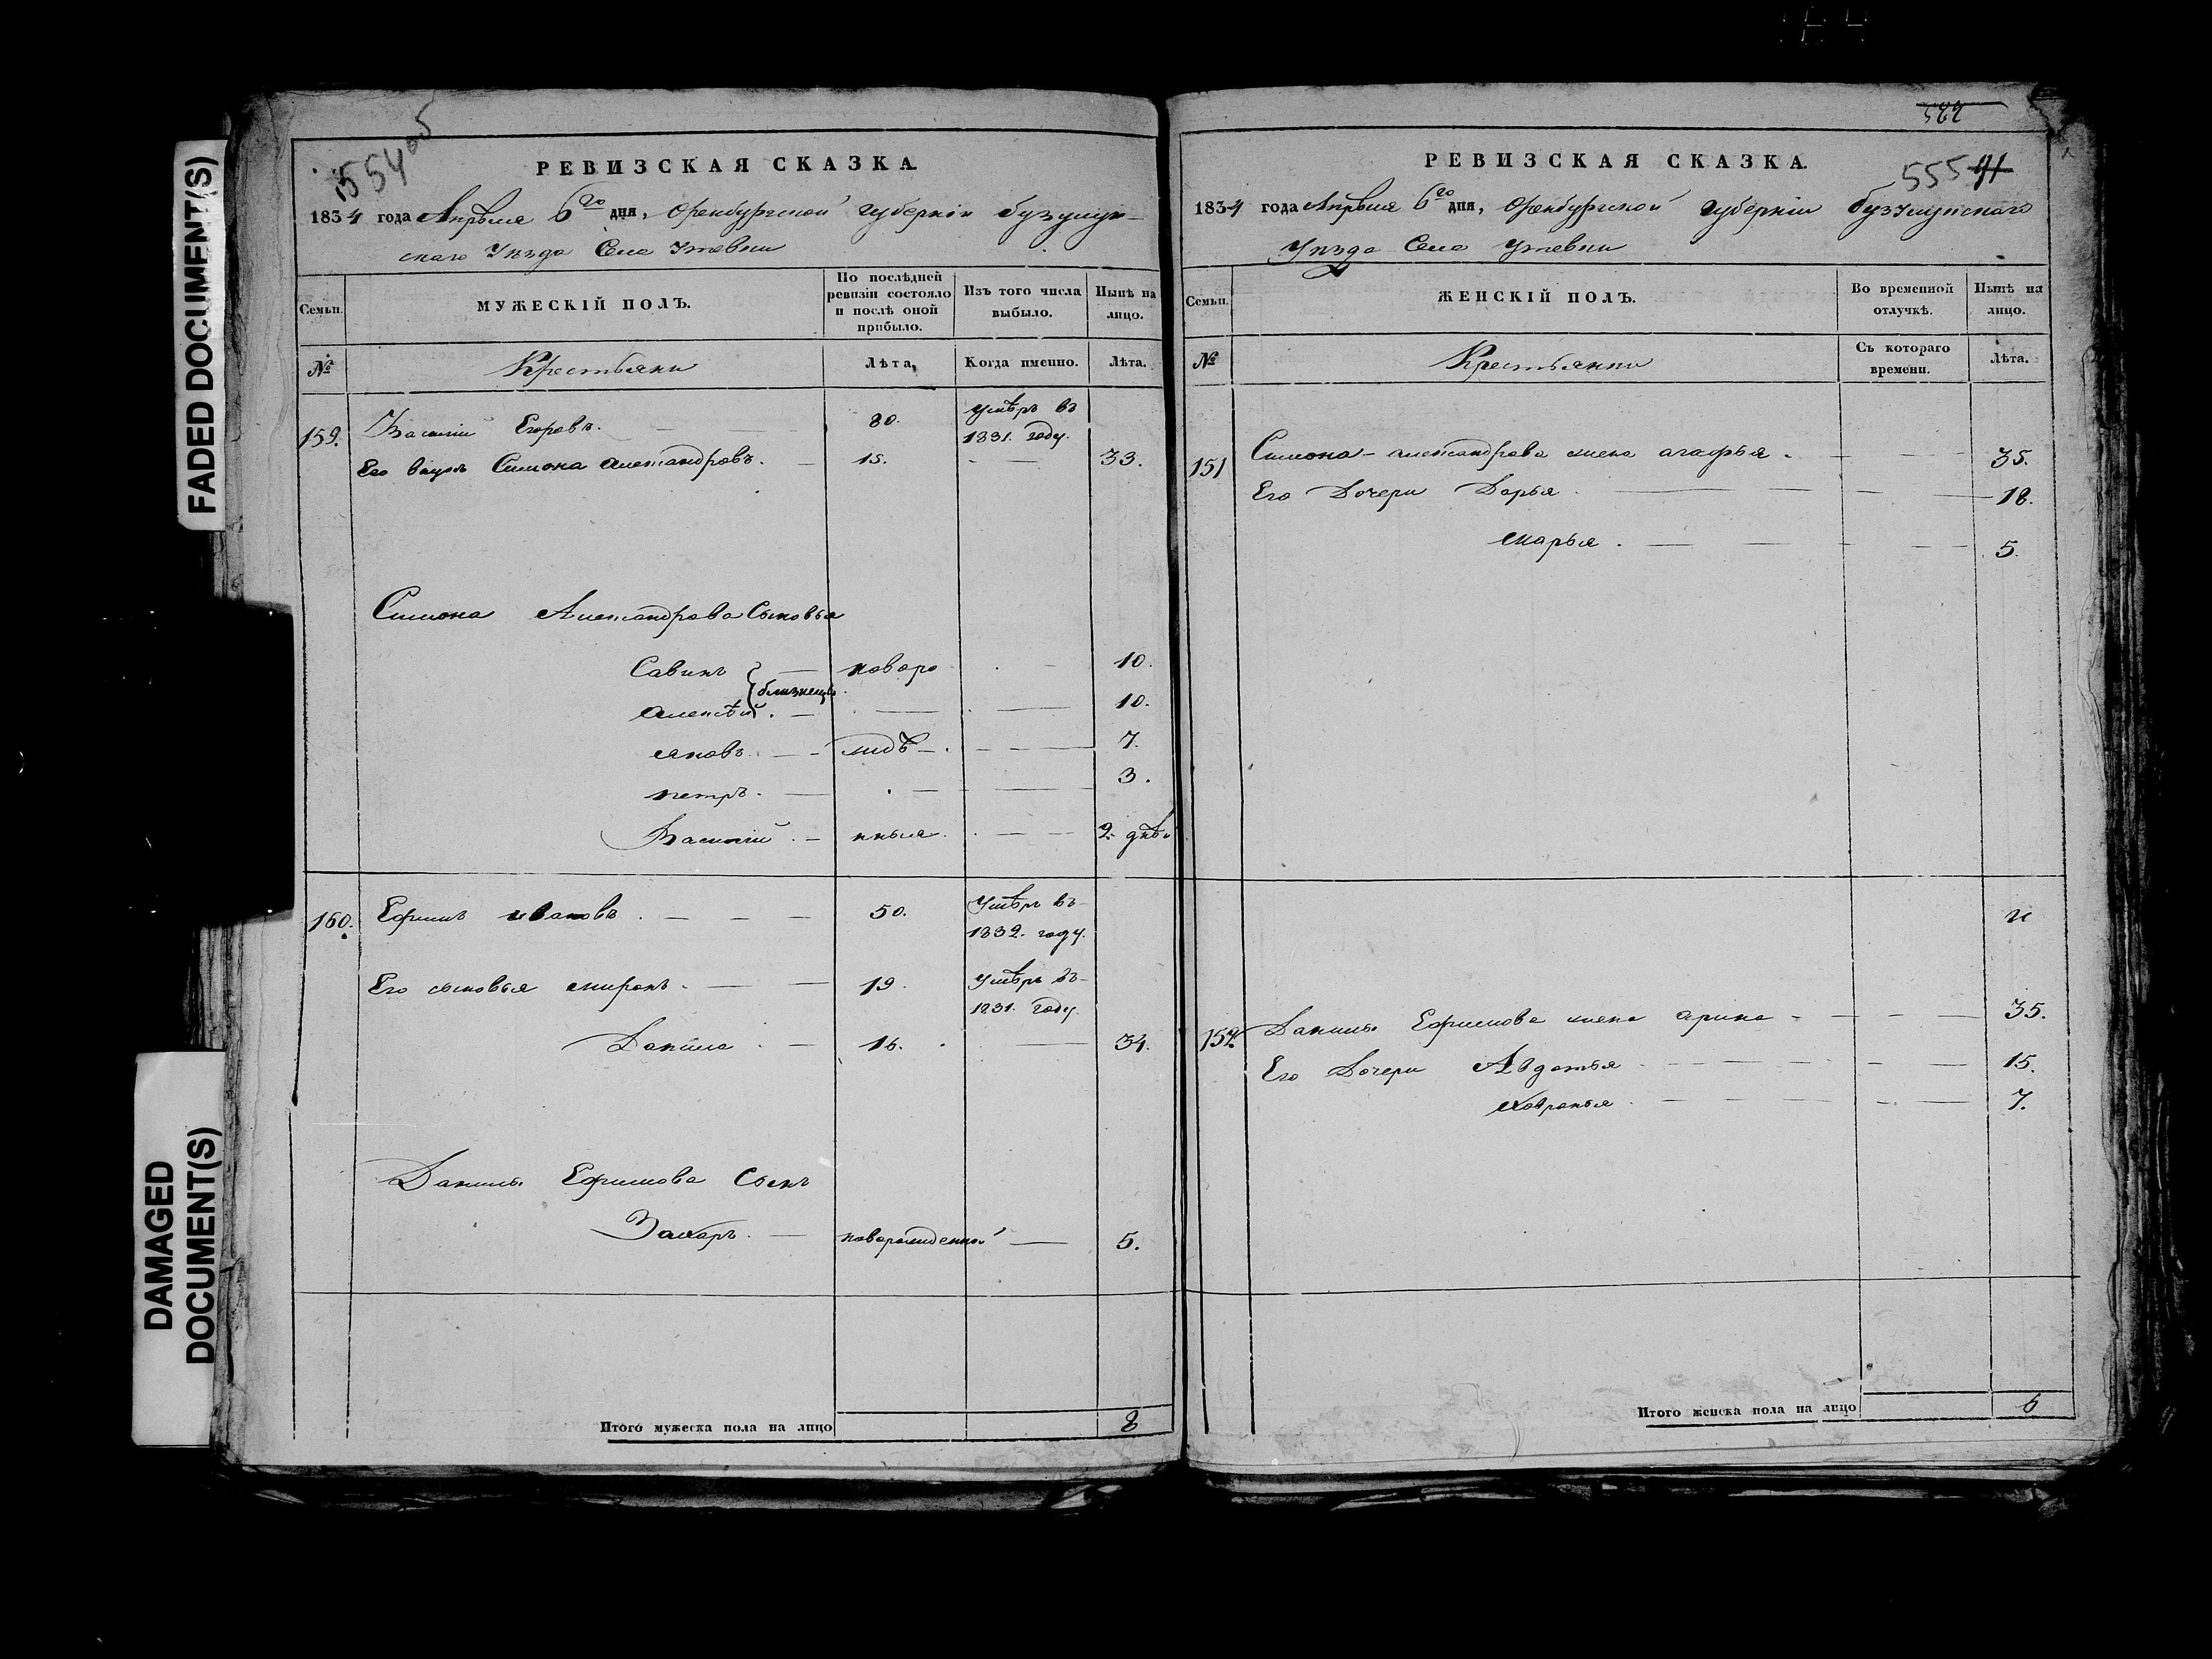 FADED DOCUMENT(S)
DAMAGED
DOCUMENT(S)
554 об
РЕВИЗСКАЯ СКАЗКА.
1834 года Апреля 6го дня, Оренбургской губернiи бузулук-
скаго Уезда Села Утевки
Семьи.
МУЖЕСКIЙ ПОЛЪ.
По послѣдней ревизiи состояло и послѣ оной прибыло.
Изъ того числа выбыло.
Нынѣ на лицо.
№
Крестьяни
Лѣта,
Когда именно.
Лѣта.
159. Василiи Егоровъ. 80. Умѣръ въ 1831. году.
Его внукъ Симона александровъ. 15. 33.
Симона Александрова Сыновья
Савинъ близнецы новоро 10.
алексѣй. 10.
яковъ. ждѣ 7.
петръ. 3.
Василiй. нныя. 2. днѣ
160. Ефимъ ивановъ. 50. Умѣръ въ 1832. году.
Его сыновья миронъ. 19. Умѣръ въ 1831. году.
Данила. 16. 34.
Данилы Ефимова Сынъ
Захаръ. новорожденной 5.
Итого мужеска пола на лицо 8
522
555 91
РЕВИЗСКАЯ СКАЗКА.
1834 года Апреля 6го дня, Оренбургской губернiи бузулускаго
Уезда Села Утевки
Семьи.
ЖЕНСКIЙ ПОЛЪ.
Во временной отлучкѣ.
Нынѣ на лицо.
№
Крестьянки
Съ котораго времени.
Лѣта.
151 Симона александрова жена агафья. 35.
Его Дочери Дарья. 18.
марья. 5.
и
152. Данилы Ефимова жена арина 35.
Его Дочери Авдотья 15.
Ховронья. 7.
Итого женска пола на лицо 6